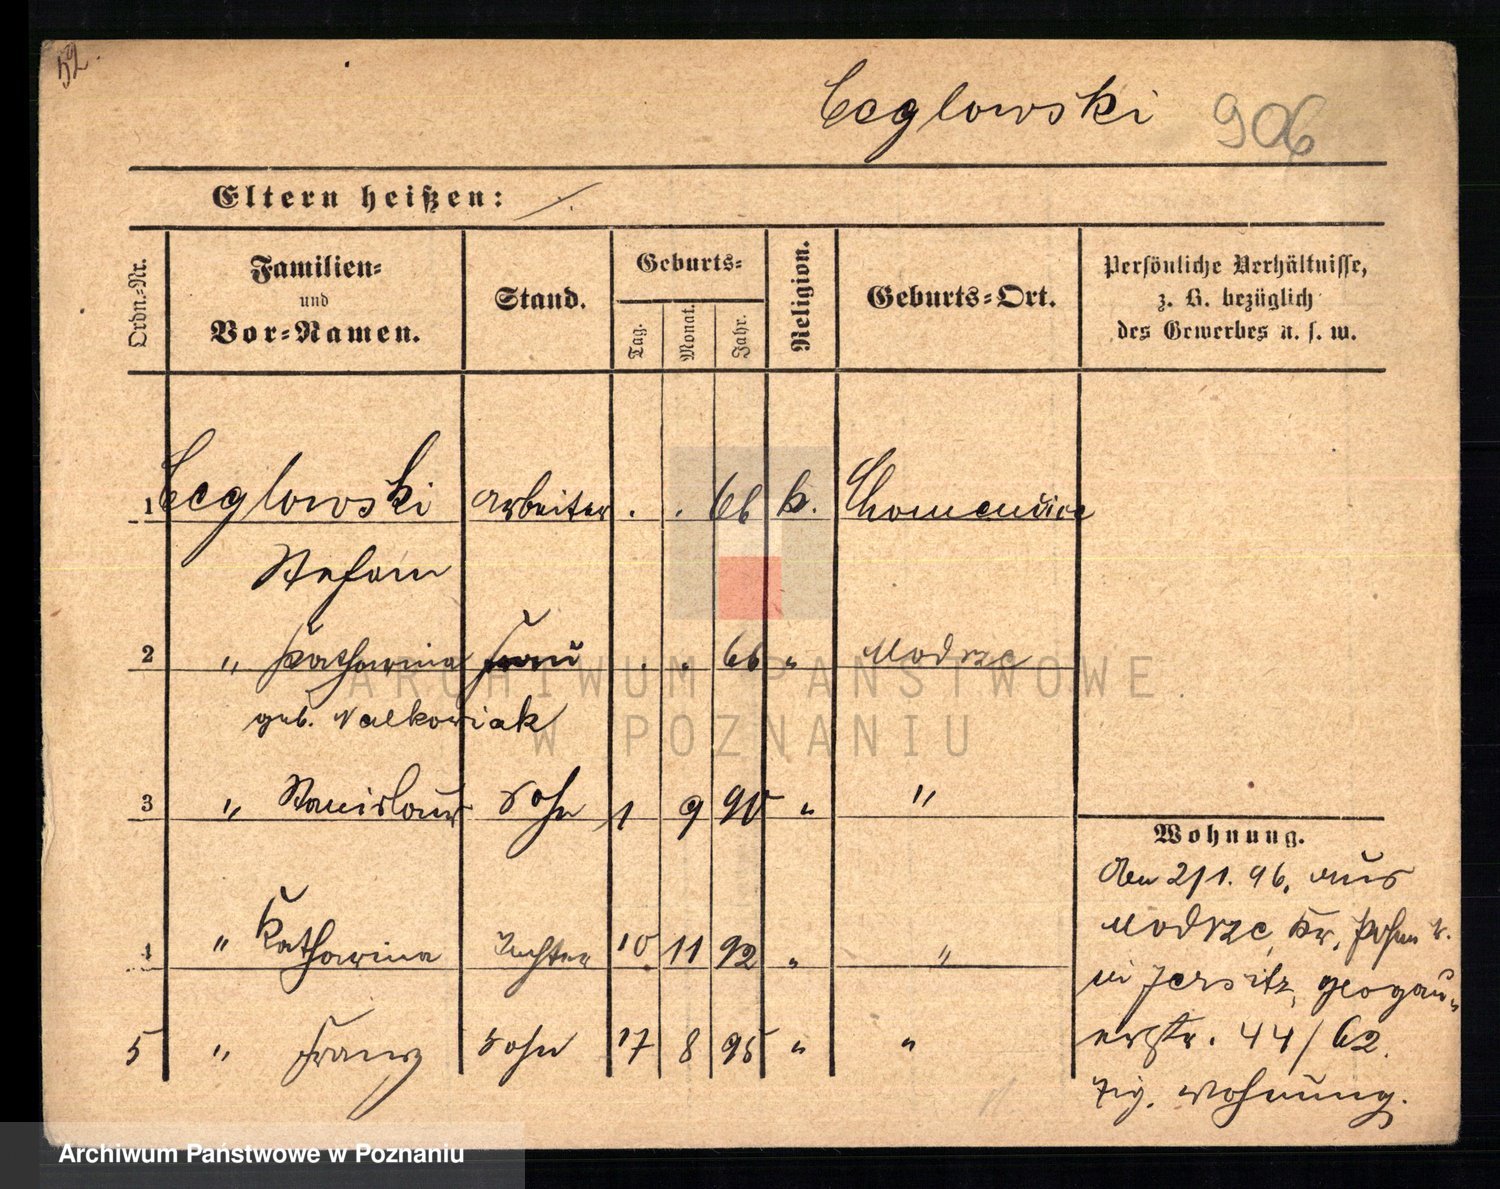 52.
Ceglowski 906
Eltern heißen:
Ordn.-Nr. Familien= und Vor=Namen. Stand. Geburts= Tag. Monat. Jahr. Religion. Geburts=Ort. Persönliche Verhältnisse, z. B. bezüglich des Gewerbes u. s. w.
1 Ceglowski Arbeiter . . 66 k. Chomencice
Stefan
2 " Katharina Frau . . 66 " Modrze
geb. Walkowiak
3 " Stanislaus Sohn 1 9 90 " "
4 " Katharina Tochter 10 11 92 " "
5 " Franz Sohn 17 8 95 " "
Wohnung.
Den 2/1. 96. aus
Modrze, Kr. Posen W.
in Jersitz, Glogau-
erstr. 44/62.
zig. Wohnung.
ARCHIWUM PAŃSTWOWE
W POZNANIU
Archiwum Państwowe w Poznaniu